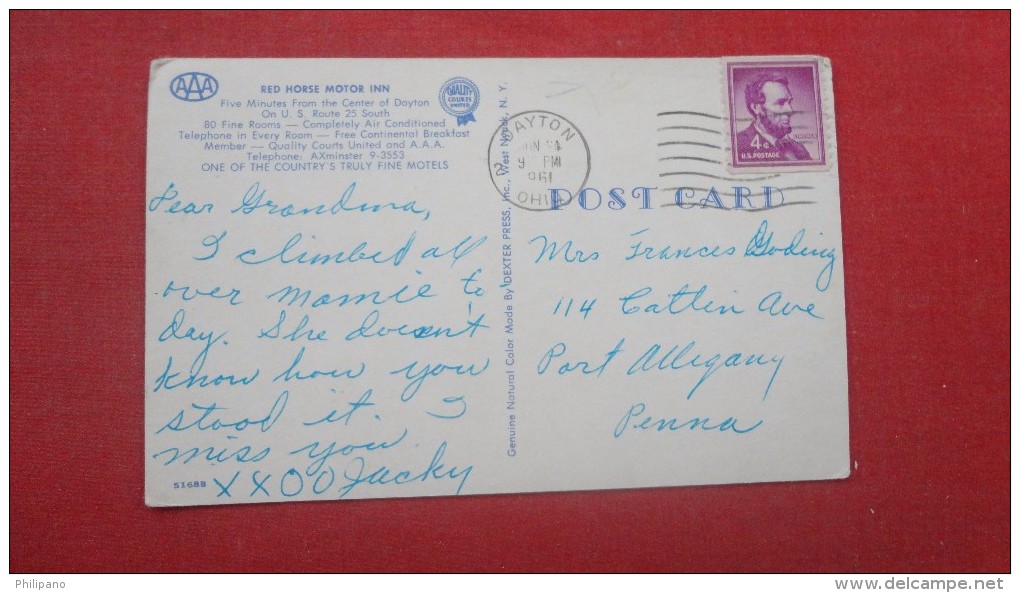 AAA
RED HORSE MOTOR INN
Five Minutes From the Center of Dayton
On U. S. Route 25 South
80 Fine Rooms — Completely Air Conditioned
Telephone in Every Room — Free Continental Breakfast
Member — Quality Courts United and A.A.A.
Telephone: AXminster 9-3553
ONE OF THE COUNTRY'S TRULY FINE MOTELS
QUALITY
COURTS
UNITED
Dear Grandma,
I climbed all
over Mamie to
day. She doesn't
know how you
stood it. I
miss you.
XXOO Jacky
S168B
Genuine Natural Color Made By DEXTER PRESS, Inc., West Nyack, N. Y.
DAYTON
PM
OHIO
4¢
U.S. POSTAGE
POST CARD
Mrs Frances Goding
114 Catlin Ave
Port Allegany
Penna
Philipano
www.delcampe.net